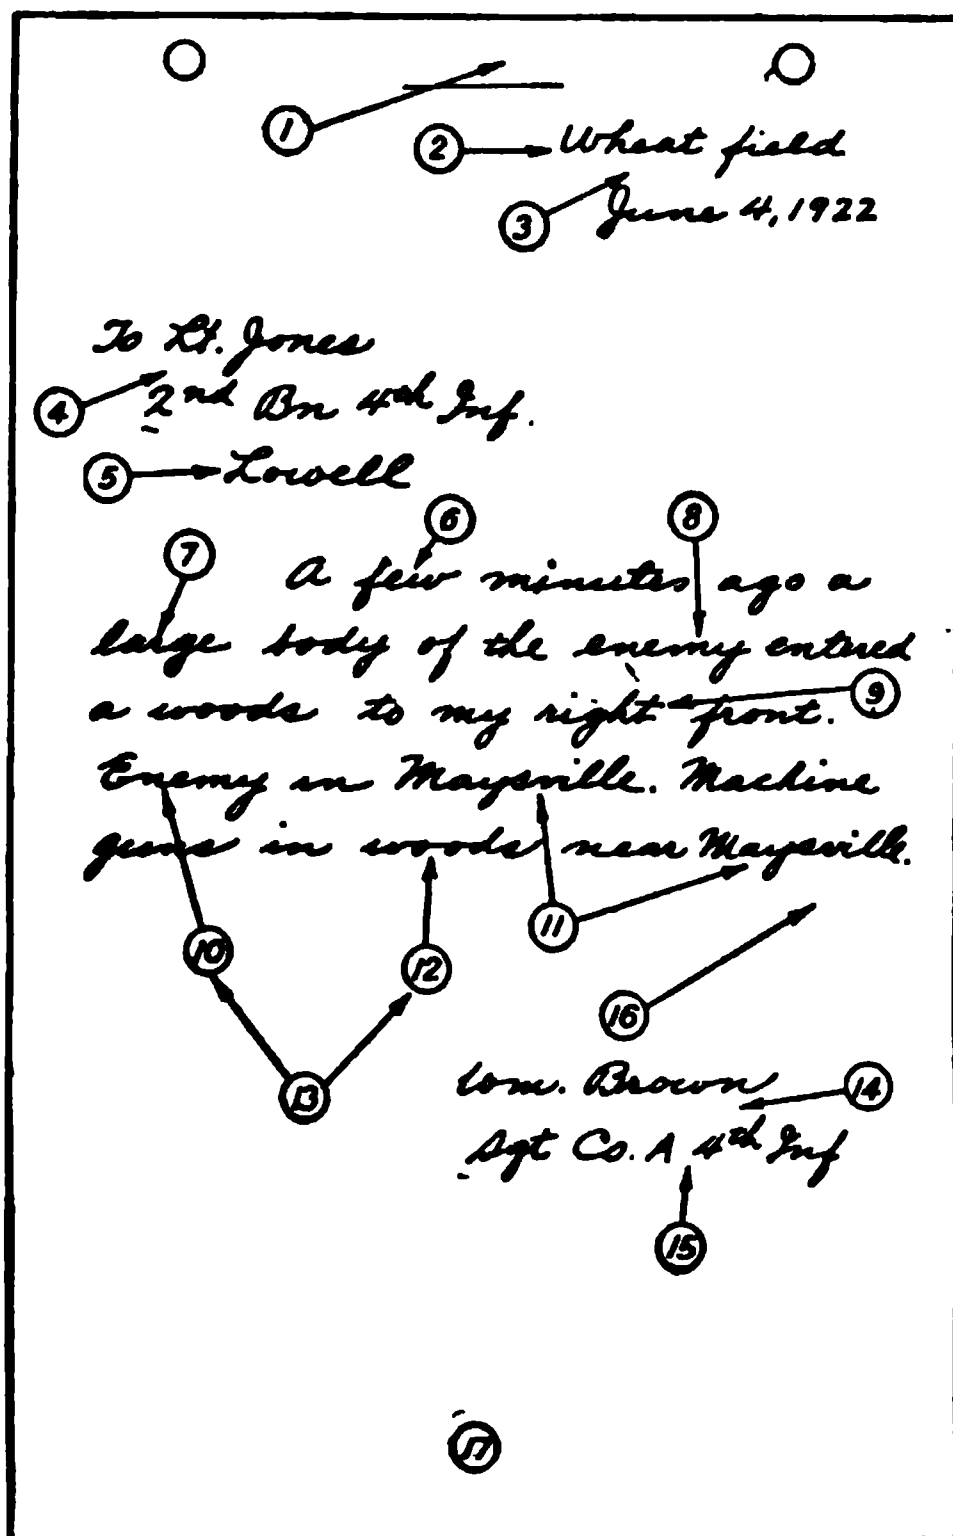 1
2 Wheat field
3 June 4, 1922
To Lt. Jones
4 2nd Bn 4th Inf.
5 Lowell
6 8
7 A few minutes ago a
large body of the enemy entered
9
a woods to my right front.
Enemy in Maysville. Machine
guns in woods near Maysville.
10 12 11
16
13 Wm. Brown 14
Sgt Co. A 4th Inf
15
17